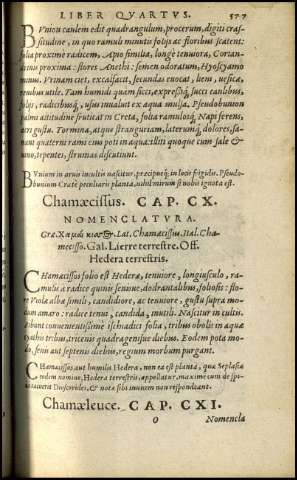 LIBER QVARTVS. 577
BVnion caulem edit quadrangulum, procerum, digiti cras-
situdine, in quo ramuli minutis folijs ac floribus scatent:
folia proxime radicem, Apio similia, longè tenuiora, Corian-
drinis proxima: flores Anethi: semen odoratum, Hyoscyamo
minus. Vrinam ciet, excalfacit, secundas euocat, lieni, uesicæ,
renibus utile. Tam humidi quàm sicci, expresso´q; succi caulibus,
folijs, radicibus´q;, usus inualuit ex aqua mulsa. Pseudobunion
palmi altitudine fruticat in Creta, folia ramulosq́; Napi ferens,
acri gustu. Tormina, atque stranguriam, laterumq́; dolores, sa-
nant quaterni rami eius poti in aqua: illiti quoque cum sale &
uino, tepentes, strumas discutiunt.
BVnium in aruis incultis nascitur, præcipuè in locis frigidis. Pseudo-
bunium Cretæ peculiaris planta, nihil mirum si nobis ignota est.
Chamæcissus. CAP. CX.
NOMENCLATVRA.
Græ. Χαμαὶ κισσὸς. Lat. Chamæcissus. Ital. Cha-
mecisso. Gal. Lierre terrestre. Off.
Hedera terrestris.
CHamæcissos folio est Hederæ, tenuiore, longiusculo, ra-
mulis à radice quinis senisue, dodrantalibus, foliosis: flo-
re Violæ albæ simili, candidiore, ac tenuiore, gustu supra mo-
dum amaro: radice tenui, candida, inutili. Nascitur in cultis.
Bibunt conuenientissime ischiadici folia, tribus obolis in aquæ
cyathis tribus, tricenis quadragensiue diebus. Eodem pota mo-
do, senis aut septenis diebus, regium morbum purgant.
CHamæcissos, aut humilis Hedera, non ea est planta, quæ Seplasiæ
eodem nomine, Hedera terrestris, appellatur, maxime cum de
tacuerit Dioscorides, & notæ sibi inuicem non respondeant.
Chamæleuce. CAP. CXI.
O Nomencla